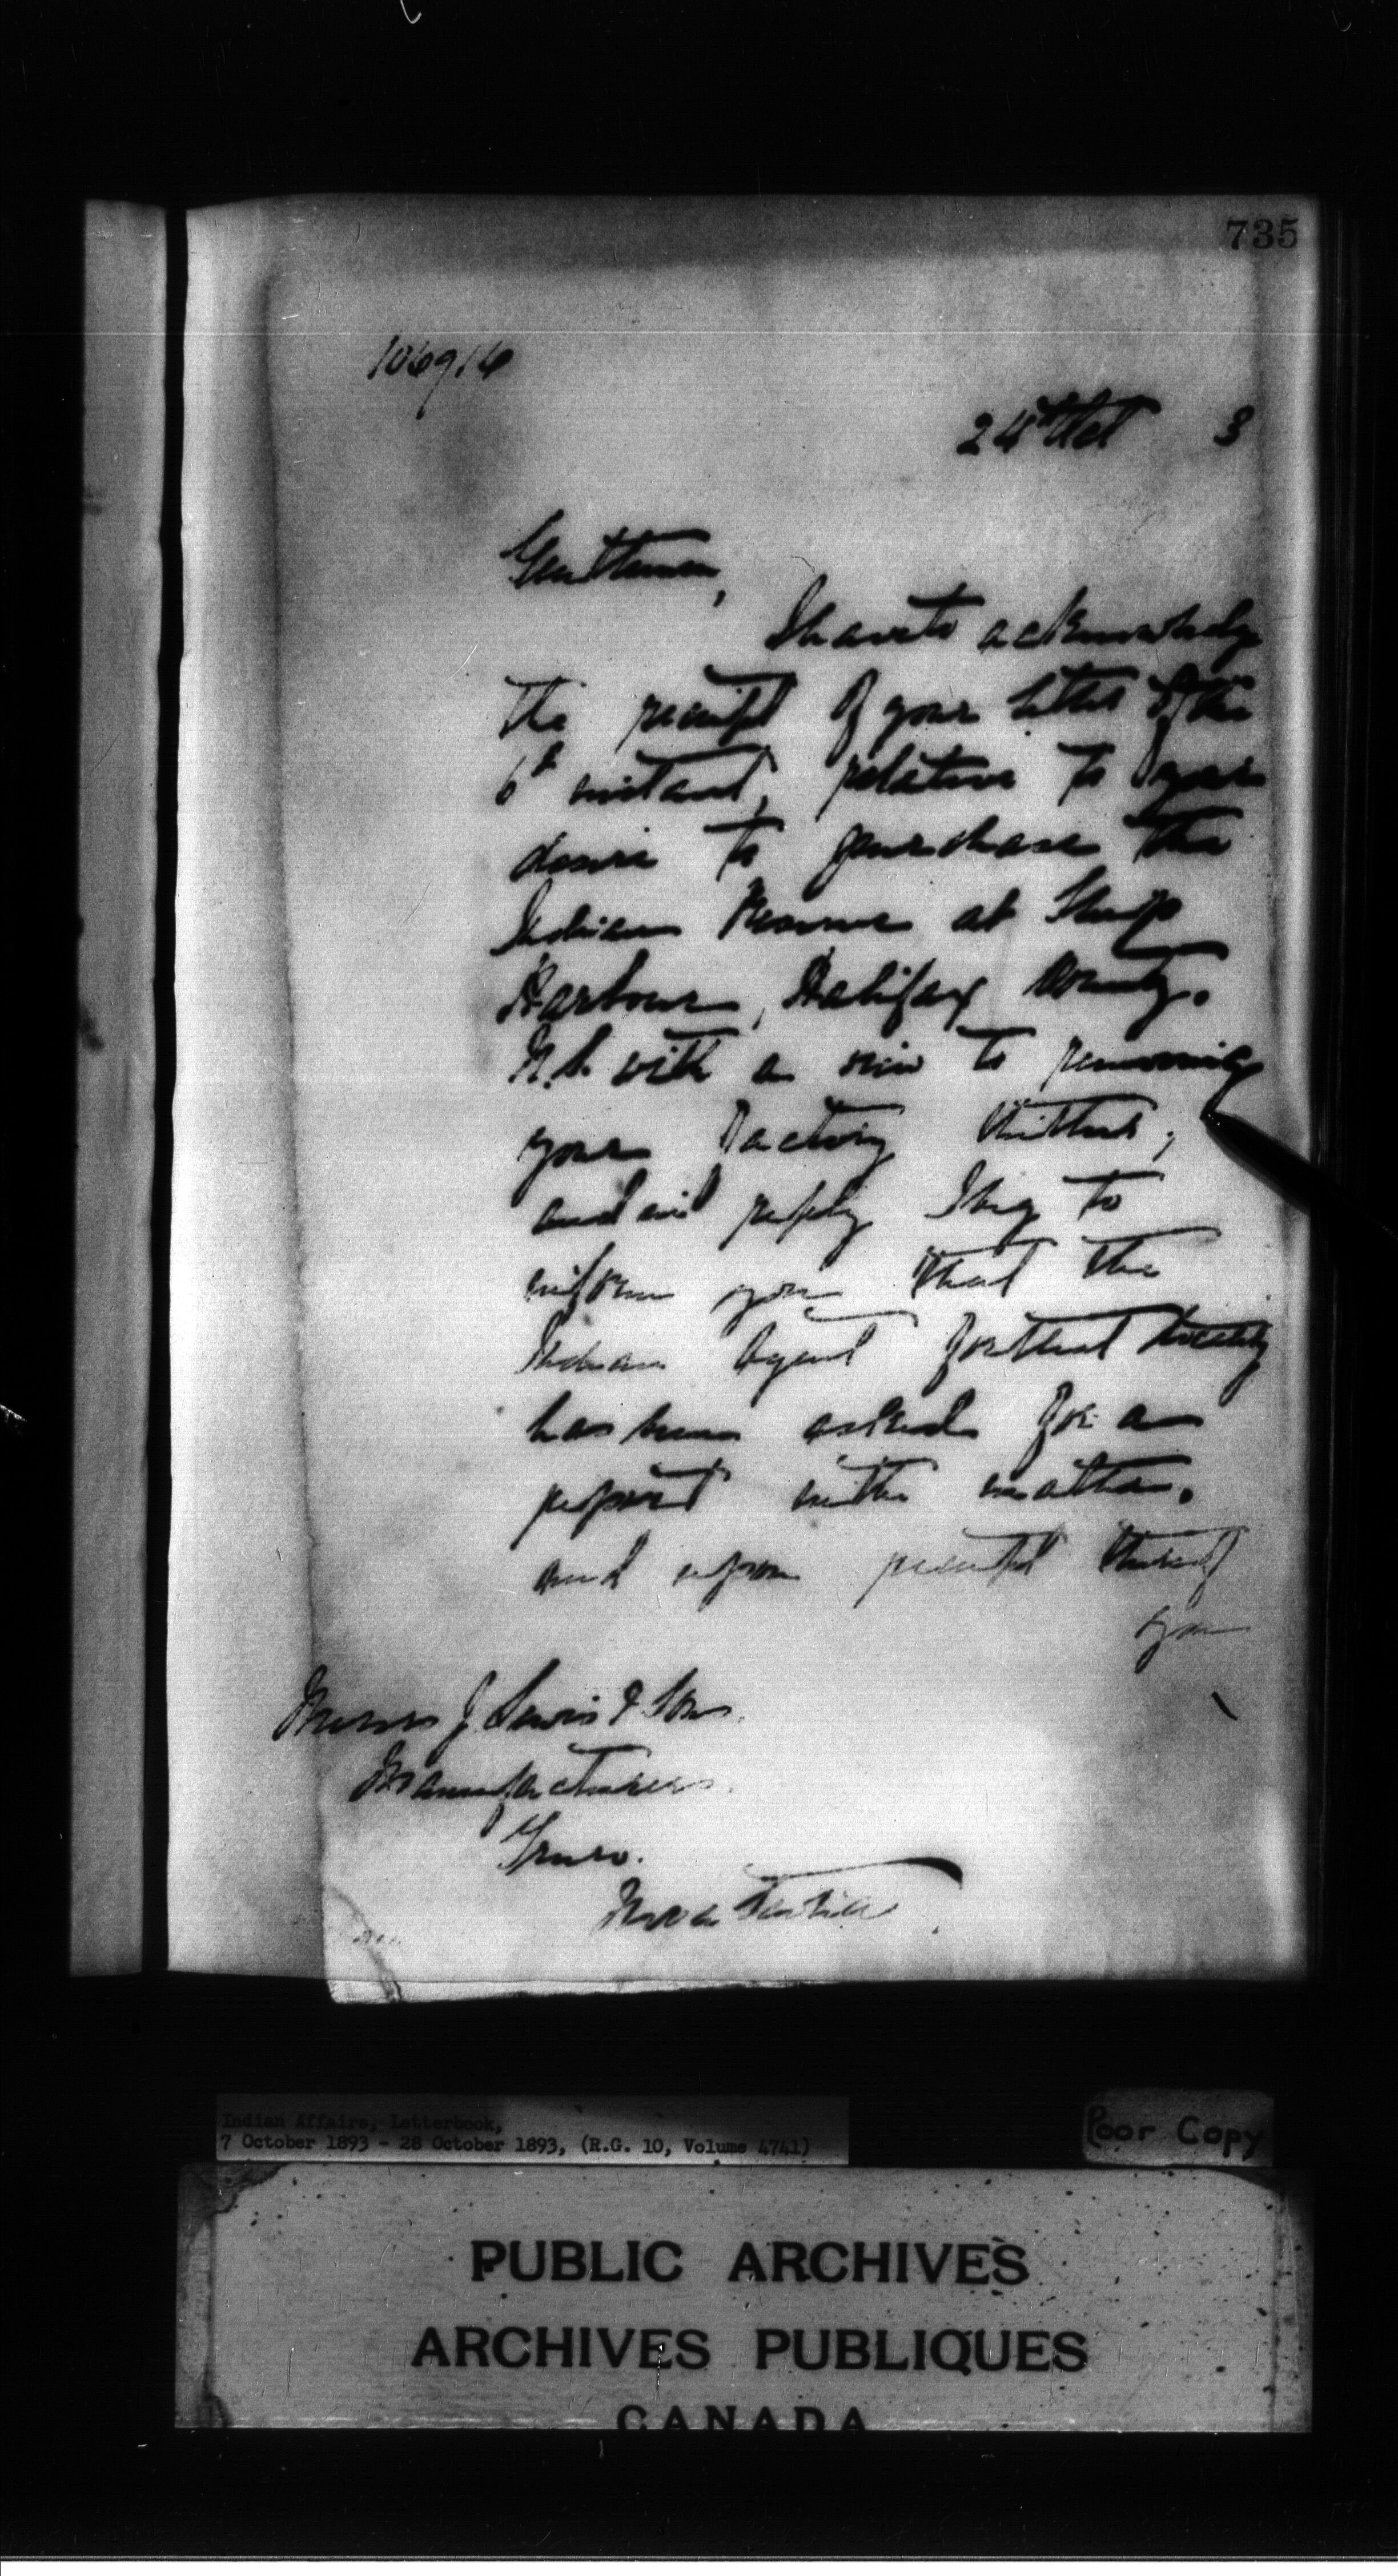 735
106916
24th Oct 3
Gentlemen,
I have to acknowledge
the receipt of your letter of the
6th instant, relative to your
desire to purchase the
Indian Reserve at Ship
Harbour, Halifax County.
N.S. with a view to removing
your factory thither;
and in reply I beg to
inform you that the
Indian Agent for that locality
has been asked for a
report in the matter.
and upon receipt thereof
you
Messrs J. Lewis & Sons.
Manufacturers.
Truro.
Nova Scotia
Indian Affairs, Letterbook,
7 October 1893 - 28 October 1893, (R.G. 10, Volume 4741)
Poor Copy
PUBLIC ARCHIVES
ARCHIVES PUBLIQUES
CANADA